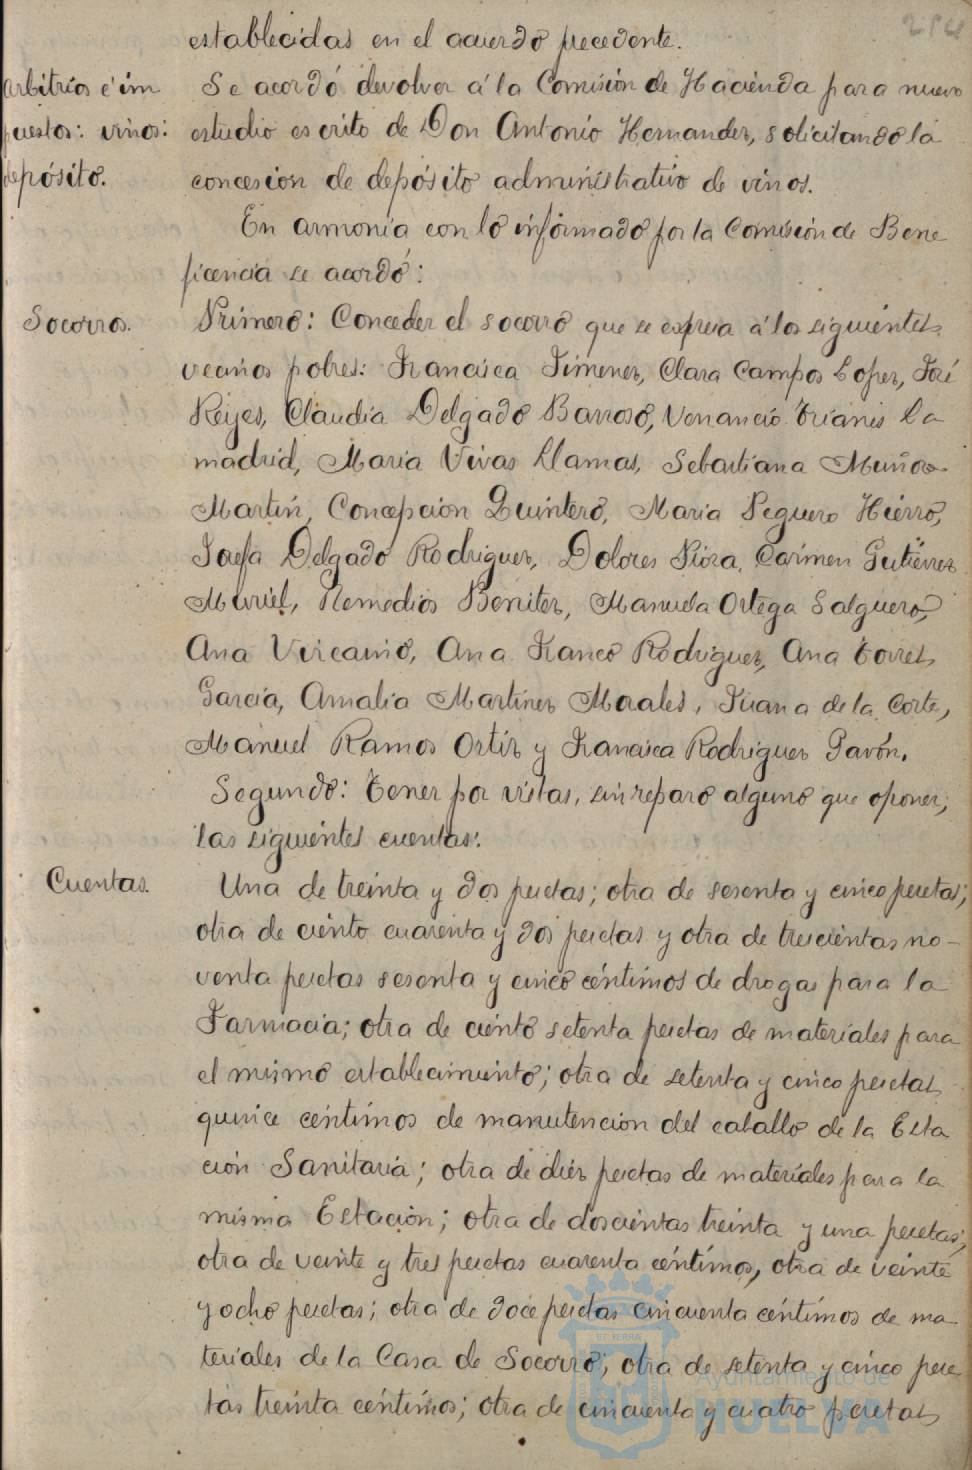 establecidas en el acuerdo precedente.
Arbitrios é im
puestos: vinos:
depósito.
Se acordó devolver á la Comisión de Hacienda para nuevo
estudio escrito de Don Antonio Hernandez, solicitando la
concesion de depósito administrativo de vinos.
En armonía con lo informado por la Comisión de Bene
ficencia se acordó:
Socorros.
Primero: Conceder el socorro que se expresa á los siguientes
vecinos pobres: Francisca Jimenez, Clara Campos Lopez, José
Reyes, Claudia Delgado Barroso, Venancio Trianis La
madrid, Maria Vivas Llamas, Sebastiana Muñoz
Martín, Concepcion Quintero, Maria Peguero Hierro,
Josefa Delgado Rodriguez, Dolores Piosa, Carmen Gutiérrez
Muriel, Remedios Benitez, Manuela Ortega Salguero,
Ana Vizcaino, Ana Franco Rodriguez, Ana Torres
García, Amalia Martinez Morales, Juana de la Corte,
Manuel Ramos Ortiz y Francisca Rodriguez Pavón.
Segundo: Tener por vistas, sin reparo alguno que oponer,
las siguientes cuentas:
Cuentas.
Una de treinta y dos pesetas; otra de sesenta y cinco pesetas;
otra de ciento cuarenta y dos pesetas y otra de trescientas no-
venta pesetas sesenta y cinco céntimos de drogas para la
Farmacia; otra de ciento setenta pesetas de materiales para
el mismo establecimiento; otra de setenta y cinco pesetas
quince céntimos de manutencion del caballo de la Esta
ción Sanitaria; otra de diez pesetas de materiales para la
misma Estación; otra de doscientas treinta y una pesetas;
otra de veinte y tres pesetas cuarenta céntimos, otra de veinte
y ocho pesetas; otra de doce pesetas cincuenta céntimos de ma
teriales de la Casa de Socorro; otra de setenta y cinco pese
tas treinta céntimos; otra de cincuenta y cuatro pesetas
Ayuntamiento de
HUELVA